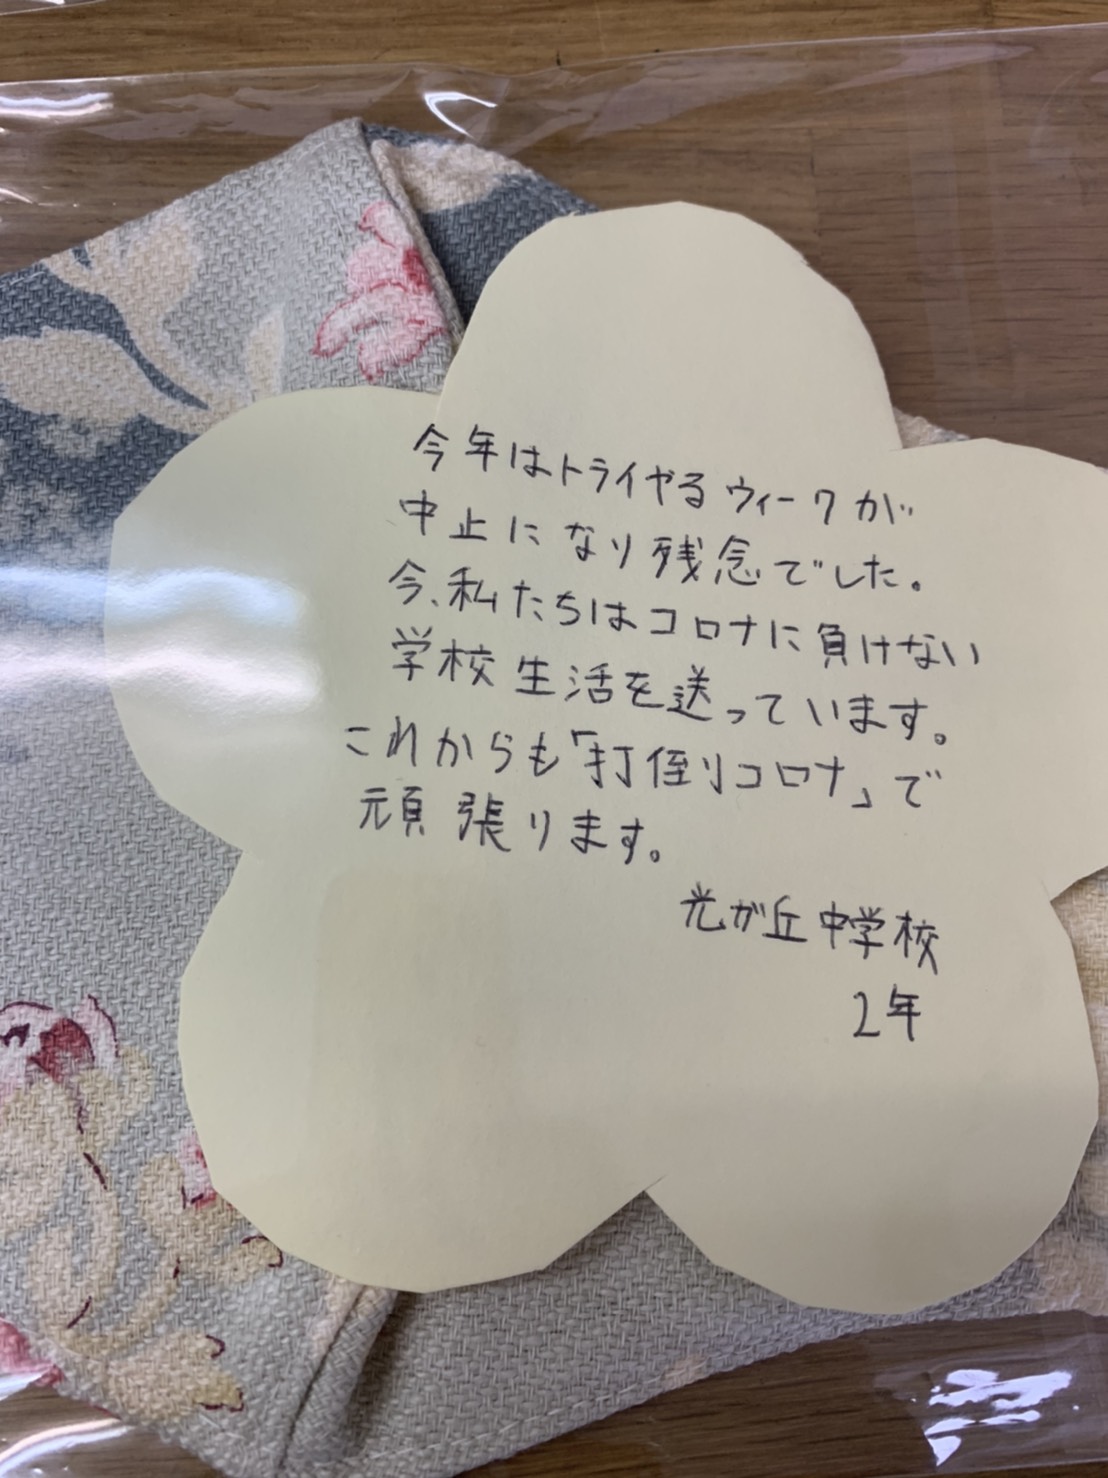 今年はトライやるウィークが
中止になり残念でした。
今、私たちはコロナに負けない
学校生活を送っています。
これからも「打倒コロナ」で
頑張ります。
光が丘中学校
2年